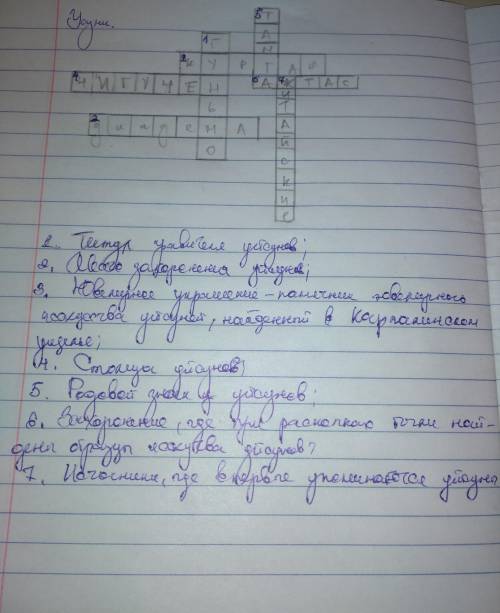 Усуни.
1 Г У Н Ь М О
2 К У Р Г А Н
3 Д И А Д Е М А
4 Ч И Г У Ч Е Н
5 Т А
6 А К Т А С
7 К И Т А Й С К И Е
1. Титул правителя уйсунов;
2. Место захоронения уйсунов;
3. Ювелирное украшение - памятник ювелирного
искусства уйсуней, найденный в Каргалинском
ущелье;
4. Столица уйсунов;
5. Родовой знак у уйсунов;
6. Захоронение, где при раскопках были най-
дены образцы искусства уйсунов?
7. Источники, где впервые упоминаются уйсуны